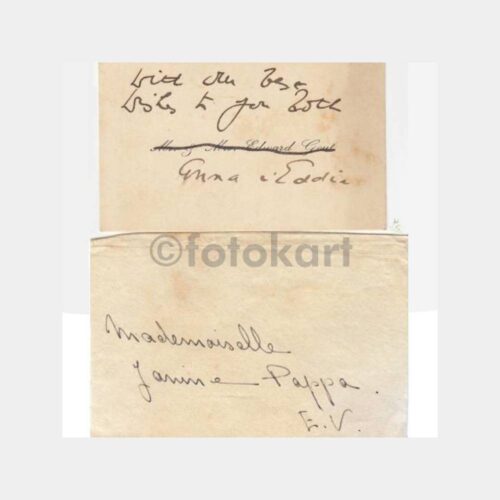 with our best
wishes to you both
Mr. & Mrs. Edward Gout
Emma & Eddie
©fotokart
Mademoiselle
Janine Pappa.
E.V.